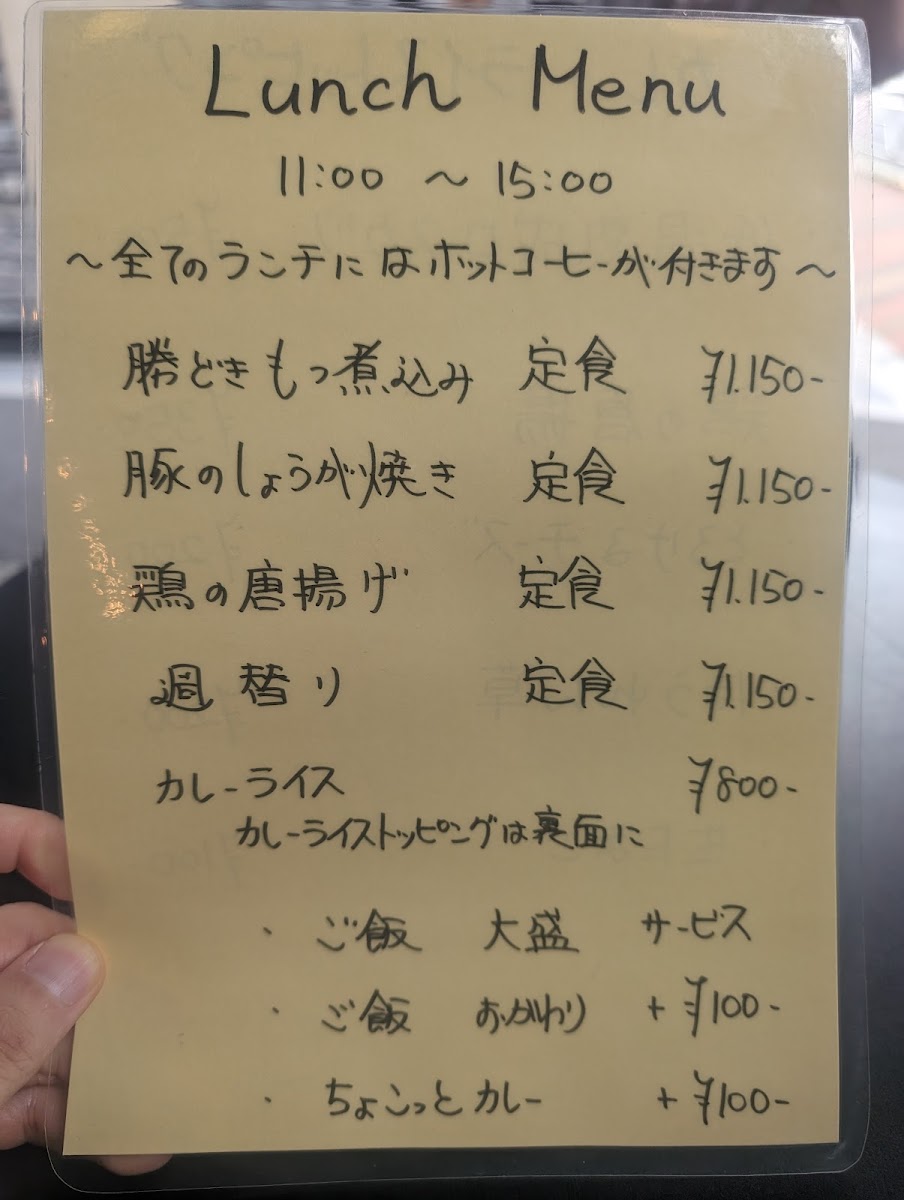 Lunch Menu
11:00 〜 15:00
〜全てのランチにはホットコーヒーが付きます〜
勝どきもつ煮込み 定食 ¥1.150-
豚のしょうが焼き 定食 ¥1.150-
鶏の唐揚げ 定食 ¥1.150-
週替り 定食 ¥1.150-
カレーライス ¥800-
カレーライストッピングは裏面に
・ご飯 大盛 サービス
・ご飯 おかわり +¥100-
・ちょこっとカレー +¥100-